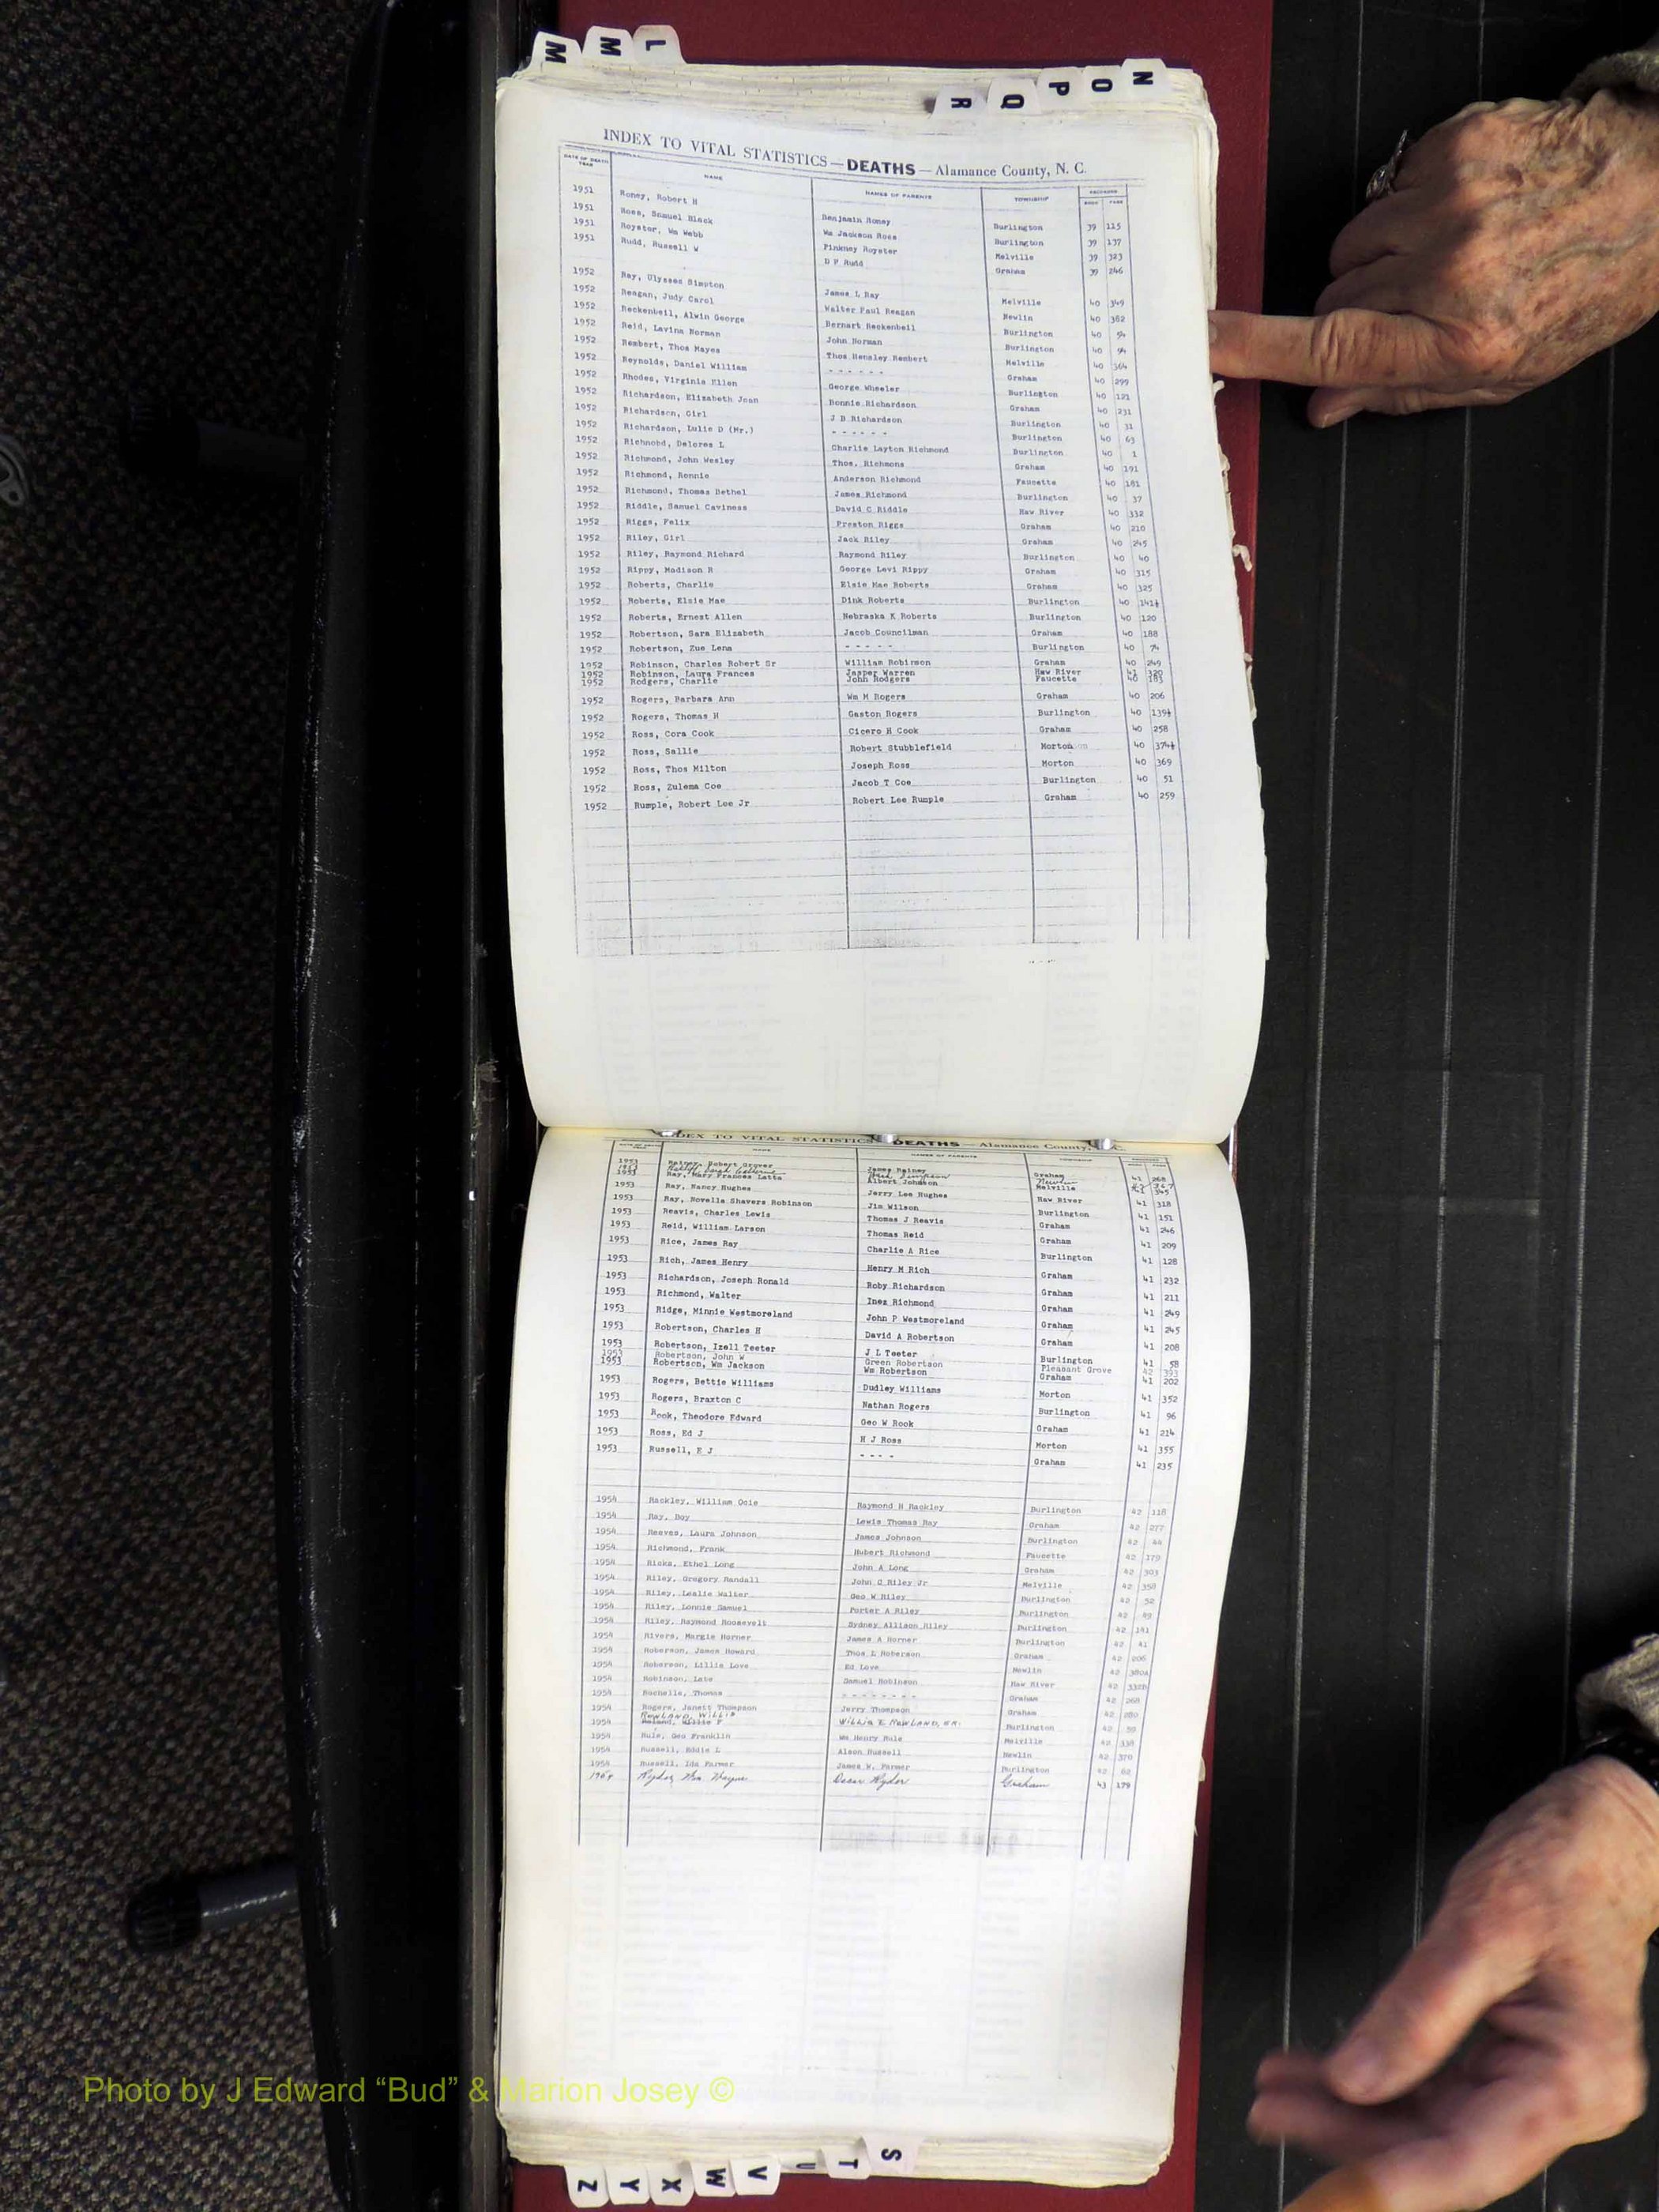 M M L
R Q P O N
INDEX TO VITAL STATISTICS — DEATHS — Alamance County, N. C.
DATE OF DEATH YEAR NAME NAMES OF PARENTS TOWNSHIP RECORDED BOOK PAGE
1951 Roney, Robert H Benjamin Roney Burlington 39 115
1951 Ross, Samuel Black Wm Jackson Ross Burlington 39 137
1951 Royster, Wm Webb Pinkney Royster Melville 39 323
1951 Rudd, Russell W D P Rudd Graham 39 246
1952 Ray, Ulysses Simpton James L Ray Melville 40 349
1952 Reagan, Judy Carol Walter Paul Reagan Newlin 40 382
1952 Reckenbeil, Alwin George Bernart Reckenbeil Burlington 40 54
1952 Reid, Lavina Norman John Norman Burlington 40 94
1952 Rembert, Thos Mayes Thos Hensley Rembert Melville 40 364
1952 Reynolds, Daniel William - - - - - - Graham 40 299
1952 Rhodes, Virginia Ellen George Wheeler Burlington 40 121
1952 Richardson, Elizabeth Joan Ronnie Richardson Graham 40 231
1952 Richardson, Girl J B Richardson Burlington 40 31
1952 Richardson, Lulie D (Mr.) - - - - - - Burlington 40 63
1952 Richmond, Delores L Charlie Layton Richmond Burlington 40 1
1952 Richmond, John Wesley Thos. Richmons Graham 40 191
1952 Richmond, Ronnie Anderson Richmond Faucette 40 181
1952 Richmond, Thomas Bethel James Richmond Burlington 40 37
1952 Riddle, Samuel Caviness David C Riddle Haw River 40 332
1952 Riggs, Felix Preston Riggs Graham 40 210
1952 Riley, Girl Jack Riley Graham 40 245
1952 Riley, Raymond Richard Raymond Riley Burlington 40 40
1952 Rippy, Madison R George Levi Rippy Graham 40 315
1952 Roberts, Charlie Elsie Mae Roberts Graham 40 325
1952 Roberts, Elsie Mae Dink Roberts Burlington 40 141½
1952 Roberts, Ernest Allen Nebraska K Roberts Burlington 40 120
1952 Robertson, Sara Elizabeth Jacob Councilman Graham 40 188
1952 Robertson, Zue Lena - - - - - Burlington 40 74
1952 Robinson, Charles Robert Sr William Robinson Graham 40 249
1952 Robinson, Laura Frances Jasper Warren Haw River 41
1952 Rodgers, Charlie John Rodgers Faucette 40 183
1952 Rogers, Barbara Ann Wm M Rogers Graham 40 206
1952 Rogers, Thomas H Gaston Rogers Burlington 40 139½
1952 Ross, Cora Cook Cicero H Cook Graham 40 258
1952 Ross, Sallie Robert Stubblefield Morton 40 374½
1952 Ross, Thos Milton Joseph Ross Morton 40 369
1952 Ross, Zulema Coe Jacob T Coe Burlington 40 51
1952 Rumple, Robert Lee Jr Robert Lee Rumple Graham 40 259
INDEX TO VITAL STATISTICS DEATHS — Alamance County, C.
NAME NAMES OF PARENTS TOWNSHIP
1953 Rainey, Robert Grover James Rainey Graham 41 268
1953 Ratliff, Sarah Catherine Simpson Newlin 42 367
1953 Ray, Mary Frances Latta Albert Johnson Melville 41 345
1953 Ray, Nancy Hughes Jerry Lee Hughes Haw River 41 318
1953 Ray, Novella Shavers Robinson Jim Wilson Burlington 41 151
1953 Reavis, Charles Lewis Thomas J Reavis Graham 41 246
1953 Reid, William Larson Thomas Reid Graham 41 209
1953 Rice, James Ray Charlie A Rice Burlington 41 128
1953 Rich, James Henry Henry M Rich Graham 41 232
1953 Richardson, Joseph Ronald Roby Richardson Graham 41 211
1953 Richmond, Walter Inez Richmond Graham 41 249
1953 Ridge, Minnie Westmoreland John P Westmoreland Graham 41 245
1953 Robertson, Charles H David A Robertson Graham 41 208
1953 Robertson, Izell Teeter J L Teeter Burlington 41 58
1953 Robertson, John W Green Robertson Pleasant Grove 42 393
1953 Robertson, Wm Jackson Wm Robertson Graham 41 202
1953 Rogers, Bettie Williams Dudley Williams Morton 41 352
1953 Rogers, Braxton C Nathan Rogers Burlington 41 96
1953 Rook, Theodore Edward Geo W Rook Graham 41 214
1953 Ross, Ed J H J Ross Morton 41 355
1953 Russell, E J - - - - Graham 41 235
1954 Rackley, William Ocie Raymond H Rackley Burlington 42 118
1954 Ray, Boy Lewis Thomas Ray Graham 42 277
1954 Reaves, Laura Johnson James Johnson Burlington 42 44
1954 Richmond, Frank Hubert Richmond Faucette 42 179
1954 Ricks, Ethel Long John A Long Graham 42 303
1954 Riley, Gregory Randall John C Riley Jr Melville 42 358
1954 Riley, Leslie Walker Geo W Riley Burlington 42 52
1954 Riley, Lonnie Samuel Porter A Riley Burlington 42 49
1954 Riley, Raymond Roosevelt Sydney Allison Riley Burlington 42 141
1954 Rivers, Margie Horner James A Horner Burlington 42 41
1954 Roberson, James Howard Thos L Roberson Graham 42 206
1954 Roberson, Lillie Love Ed Love Newlin 42 380A
1954 Robinson, Late Samuel Robinson Haw River 42 332B
1954 Rochelle, Thomas - - - - - - - - Graham 42 268
1954 Rogers, Janett Thompson Jerry Thompson Graham 42 280
ROWLAND, WILLIE
1954 Roland, Willie F WILLIE E. ROWLAND, SR. Burlington 42 59
1954 Rule, Geo Franklin Wm Henry Rule Melville 42 338
1954 Russell, Eddie L Alson Russell Newlin 42 370
1954 Russell, Ida Farmer James W. Farmer Burlington 42 62
1954 Ryder, Wm. Wayne Oscar Ryder Graham 43 179
Photo by J Edward “Bud” & Marion Josey ©
Z Y X W V U T S